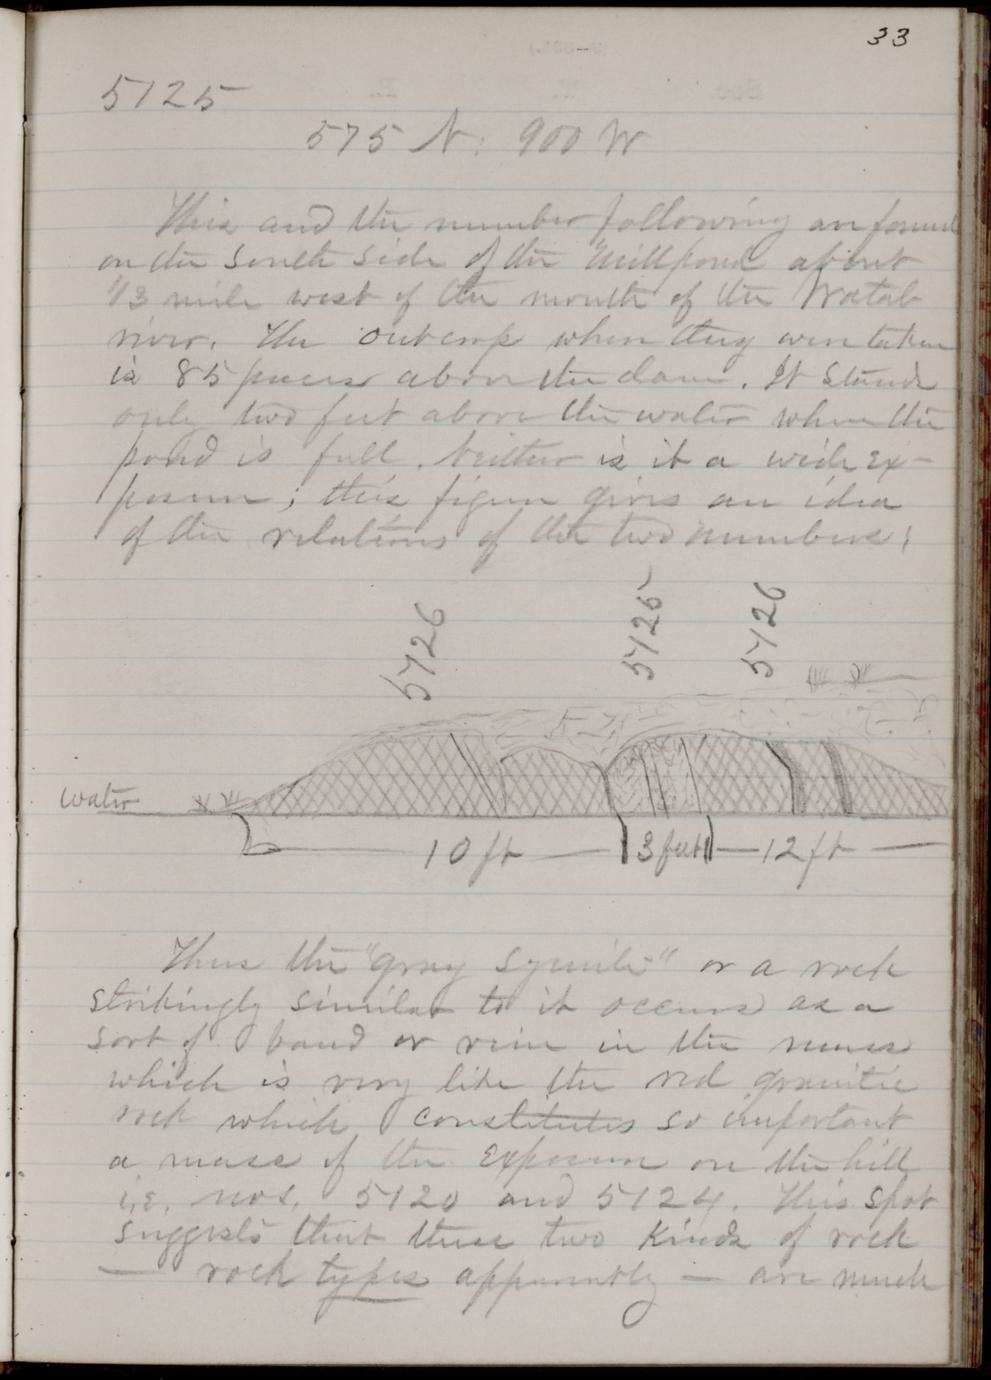 33
5125
575 N. 900 W
This and the number following are found
on the south side of the millpond about
1/3 mile west of the mouth of the Watab
river. The outcrop where they were taken
is 85 paces above the dam. It stands
only two feet above the water when the
pond is full. Neither is it a wide ex-
posure; this figure gives an idea
of the relations of the two numbers:
5126
5125
5126
water
10 ft
3 feet
12 ft
Thus the "gray syenite" or a rock
strikingly similar to it occurs as a
sort of band or vein in the mass
which is very like the red granitic
rock which constitutes so important
a mass of the exposure on the hill
i.e. nos. 5120 and 5124. This spot
suggests that these two kinds of rock
— rock types apparently — are much